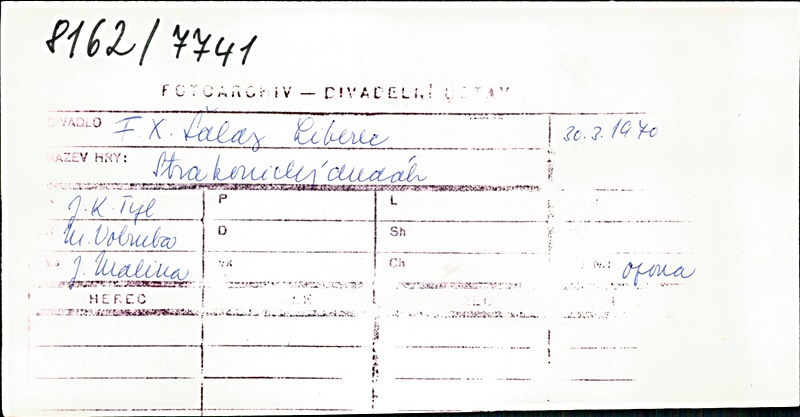 8162/7741
FOTOARCHIV — DIVADELNÍ ÚSTAV
DIVADLO F. X. Šalda Liberec 30.3.1970
NÁZEV HRY: Strakonický dudák
J. K. Tyl P L
M. Vobruba D Sh
J. Malina Ch opona
HEREC